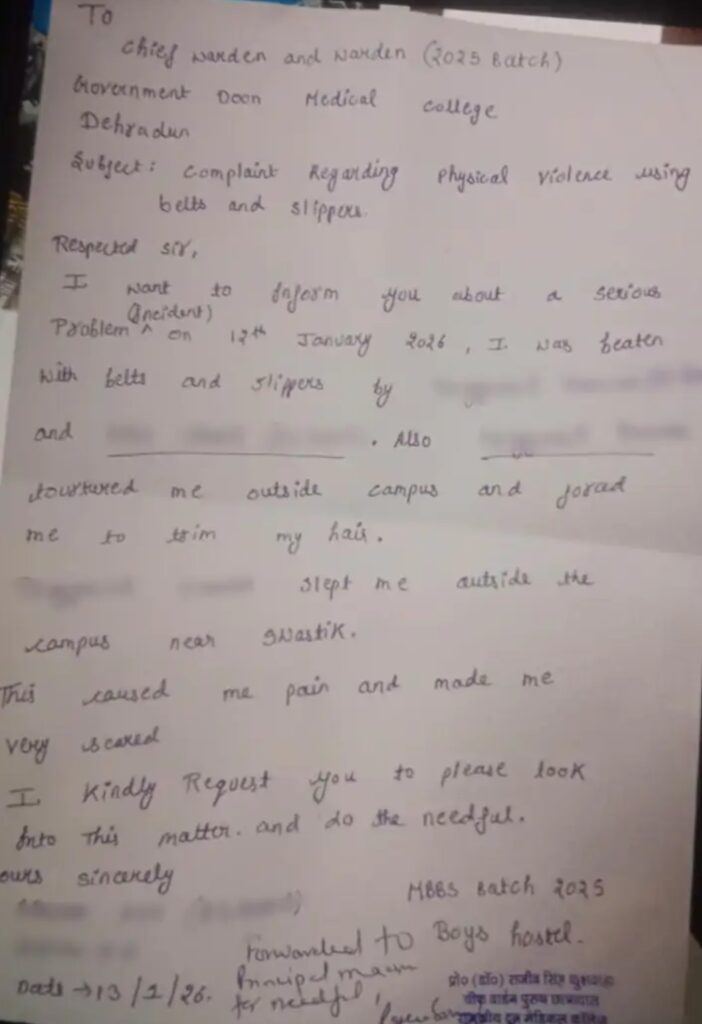 To
Chief Warden and Warden (2025 Batch)
Government Doon Medical College
Dehradun
Subject: Complaint Regarding Physical Violence using
belts and slippers.
Respected Sir,
I want to inform you about a serious
(Incident)
Problem ^ on 12th January 2026, I was beaten
with belts and slippers by
and . Also
tourtured me outside campus and forced
me to trim my hair.
slept me outside the
campus near swastik.
This caused me pain and made me
very scared
I Kindly Request you to please look
into This matter. and do the needful.
ours sincerely
MBBS Batch 2025
Forwarded to Boys hostel.
Principal maam
for needful,
Date → 13/1/26.
प्रो० (डॉ०) राजीव सिंह कुशवाहा
चीफ वार्डन पुरुष छात्रावास
राजकीय दून मेडिकल कॉलेज